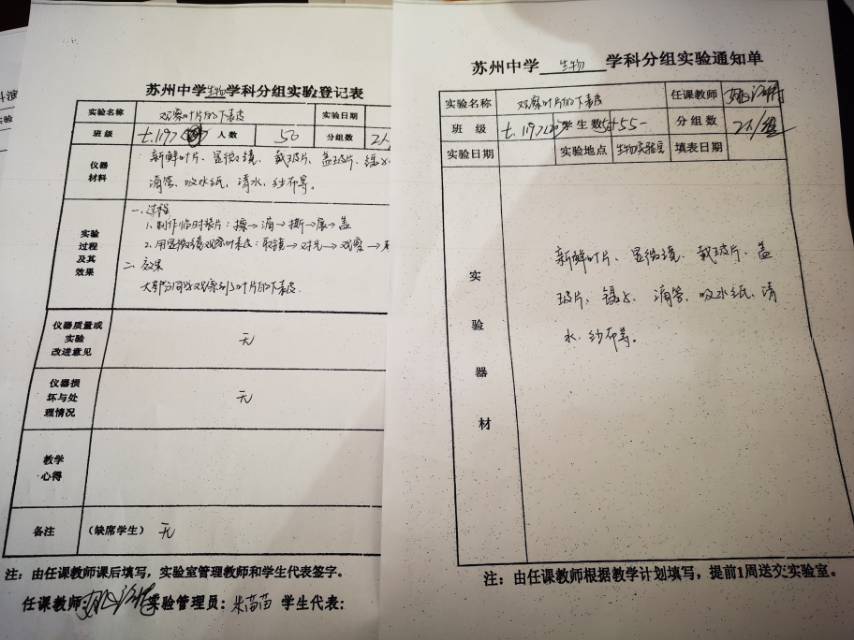 苏州中学生物学科分组实验登记表
实验名称 观察叶片的下表皮 实验日期
班级 七.1197 人数 50 分组数 2人
仪器材料
新鲜叶片、显微镜、载玻片、盖玻片、镊子
滴管、吸水纸、清水、纱布等。
实验过程及其效果
一、过程
1. 制作临时装片：擦→滴→撕→展→盖
2. 用显微镜观察叶表皮：取镜→对光→观察→
二、效果
大部分同学观察到了叶片的下表皮.
仪器质量或实验改进意见 无
仪器损坏与处理情况 无
教学心得
备注 (缺席学生) 无
注：由任课教师课后填写，实验室管理教师和学生代表签字。
任课教师: 实验管理员: 朱苗苗 学生代表:
苏州中学 生物 学科分组实验通知单
实验名称 观察叶片的下表皮 任课教师
班级 七.1197 学生数 55 分组数 2人/组
实验日期 实验地点 生物实验室 填表日期
实验器材
新鲜叶片、显微镜、载玻片、盖
玻片、镊子、滴管、吸水纸、清
水、纱布等。
注：由任课教师根据教学计划填写，提前1周送交实验室。